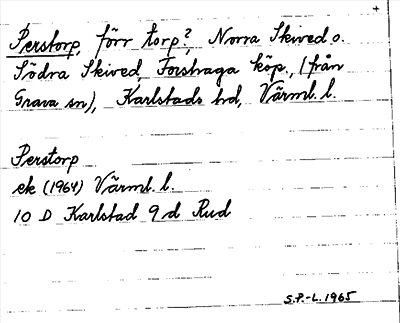 +
Perstorp, förr torp?, Norra Skived o.
Södra Skived, Forshaga köp., (från
Grava sn), Karlstads hd, Värml. l.
Perstorp
ek (1964) Värml. l.
10 D Karlstad 9 d Rud
S.P.-L. 1965